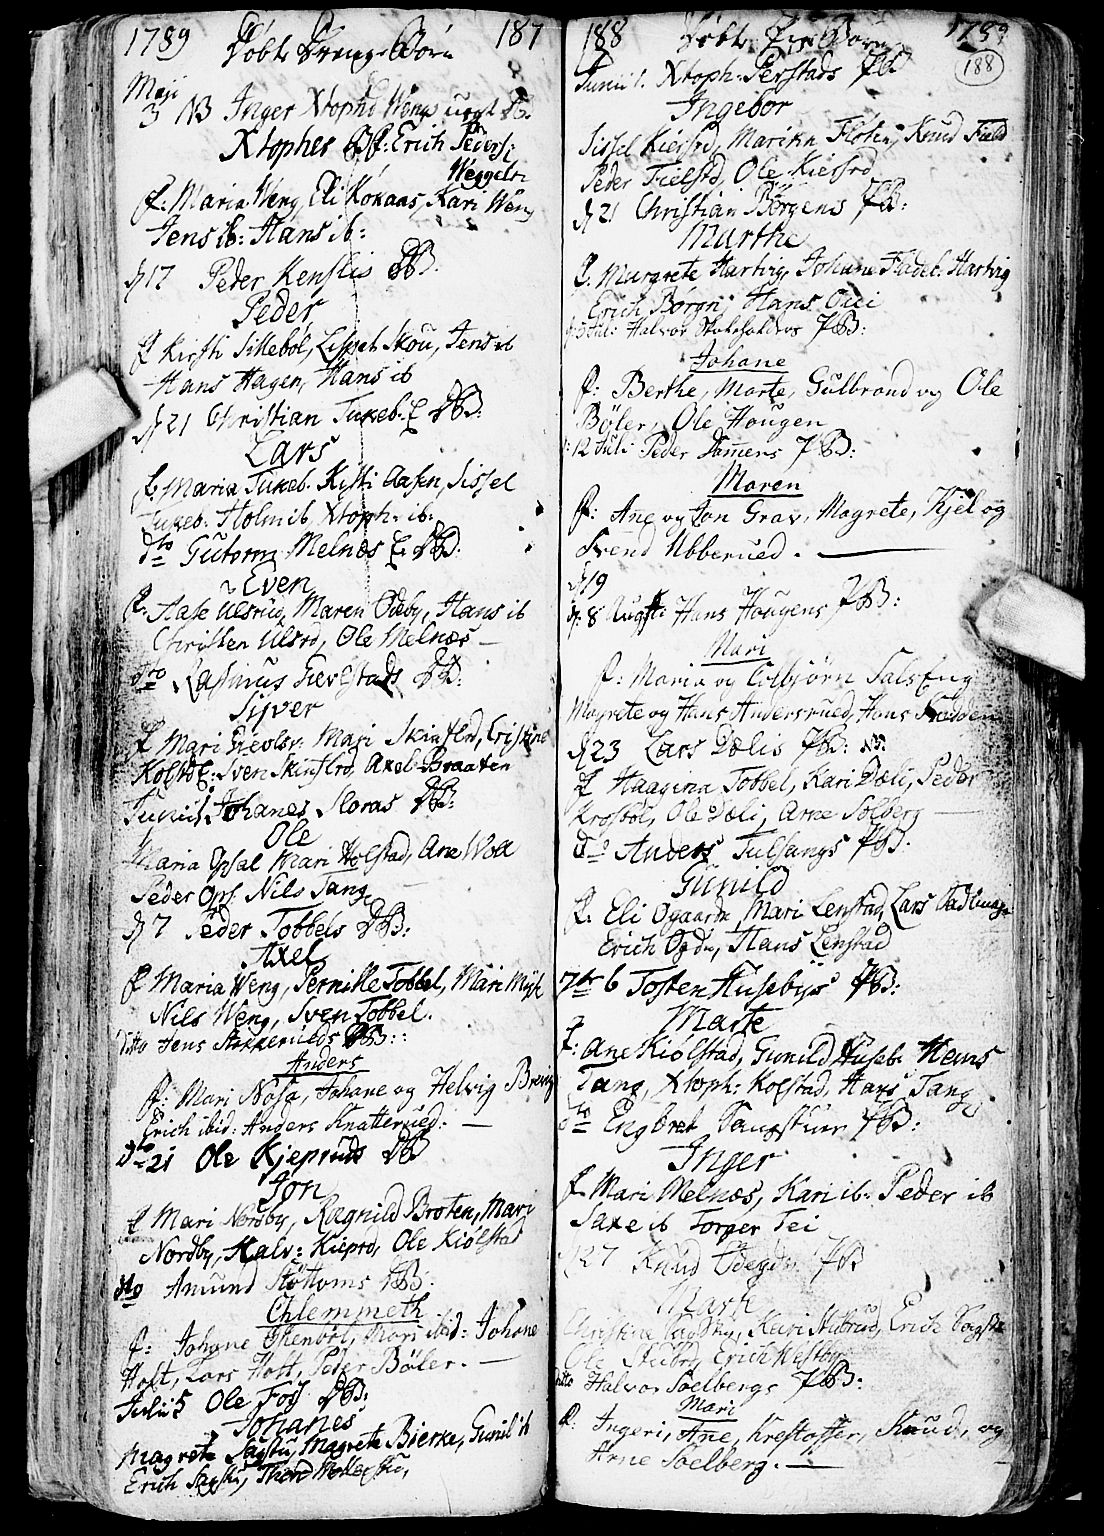 1789 Døbte Drenge-Børn 187
Maji
3 NB Inger Xtophd Weng uægt DB.
Xtopher Bf: Erich Peders:
f: Maria Weng, Eli Kokaas, Kari Weng
Jens ib: Hans ib:
d 17 Peder Kenslis DB.
Peder
f Kirsti Sikebøl, Lisbet Skou, Jens ib
Hans Hagen, Hans ib
d 21 Christian Tukeb: E DB:
Lars
f. Maria Tukeb. Kisti Aasen, Sissel
Tukeb: Holm ib, Xtoph. ib.
dto Gutorm Melnæs E. DB:
Even
f. Aase Ulsrud, Maren Ødeby, Hans ib
Christen Ulsrd, Ole Melnæs —
dto Rasmus Grevlstads DB:
Siver
f Mari Grevlsr: Mari Skinslrd, Cristine
Kolstd: Sven Skinslrd, Axel Braaten
Junii 1. Johanes Sloras DB:
Ole
Maria Opsal Mari Holstad, Ane Woll
Peder Ops: Nils Tang
d 7 Peder Tobbels DB:
Axel
f Maria Weng, Pernille Tobbel, Mari
Nils Weng, Sven Tobbel.
ditto Jens Stokkerueds DB:
Anders
f: Mari Nosa, Johane og Helvig Brevig
Erich ibid: Anders Knatterued: —
dto 21 Ole Kjepruds DB
Jon
f Mari Nordby, Ragnild Broten, Mari
Nordby, Halv: Kieprd, Ole Kiølstad
dto Amund Støttoms DB:
Chlemmeth
f: Johane Stenbøl, Kari ibid: Johane
Holt, Lars Holt, Peder Bøler. —
Julii 5 Ole Foss DB:
Johanes
Magrete Sagstu, Magrete Bierke, Gunil ib
Erich Sagst,
188 Døbte Pige Børn 1789
188
Junii 1. Xtoph: Perstads PB
Ingebor
Sissel Kiersrd, Marihn Floten, Knud Field
Peder Fielsrd, Ole Kiersrd
d 21 Christian Børgens PB:
Marthe
f. Margrete Hartvig, Johane Fladeb. Hartvig
Erich Børgn, Hans
d 5 Juli Halvor PB:
Johane
f: Berthe, Marte, Gulbrand og Ole
Bøler, Ole Hougen
12 Juli Peder Hamers PB:
Maren
f: Ane og Jon Grav, Magrete, Kjel og
Svend Ubberued. —
d 19
d: 8 Augsti Hans Hougens PB:
Mari
f: Maria og Colbjørn Sals Eng
Magrete og Hans Andersrued, Hans Fredden
d 23 Lars Dælis PB: NB.
f Haagina Tobbel, Kari Dæli, Peder
Krosbøl, Ole Dæli, Arne Solberg —
do Anders Tulsangs PB.
Gunild
f. Eli Øgaarn, Mari Lenstad, Lars
Erich Øgdn, Hans Lenstad
7br 6 Tosten Husebys PB:
Marte
f: Ane Kiølstad, Gunild Huseb: Hans
Tang, Xtoph: Kolstad, Hans Tang
dto Engbret PB:
Inger
f. Mari Melnæs, Kari ib: Peder ib
Saxe ib Torger Tei
d 27 Knud Ødegdn PB
Mari
Christine Sagstu, Kari Stubrud, Erich Sagstu
Ole Stubrd, Erich Westby
ditto Halvor Soelbergs PB:
Mari
f: Ingeri, Ane, Krestoffer, Knud, og
Arne Soelberg. —